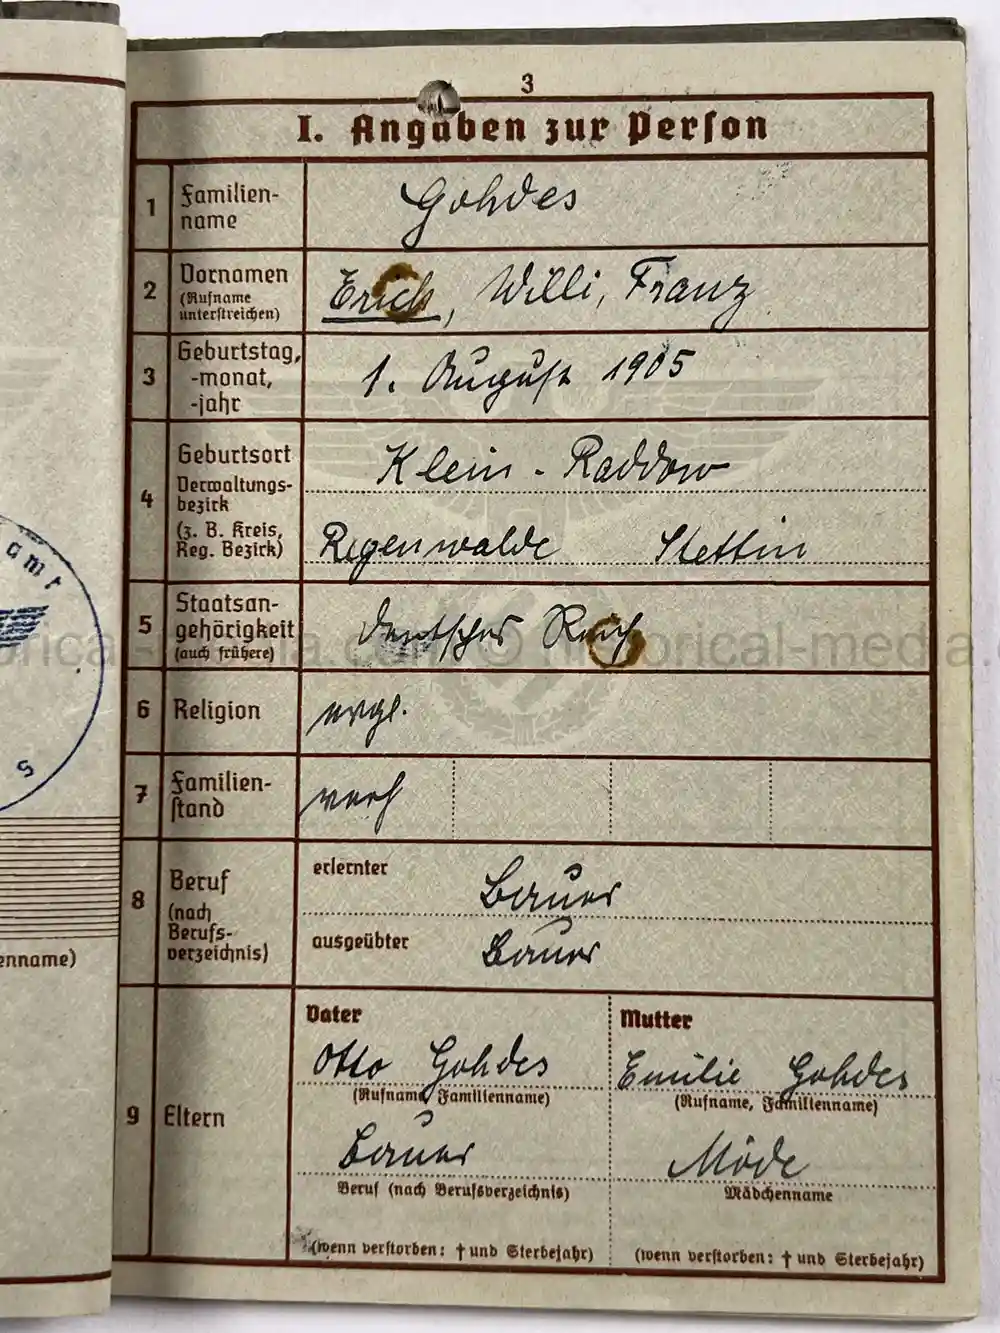 3
I. Angaben zur Person
1 Familien-
name
Gohdes
2 Vornamen
(Rufname
unterstreichen)
Erich, Willi, Franz
3 Geburtstag,
-monat,
-jahr
1. August 1905
4 Geburtsort
Verwaltungs-
bezirk
(z. B. Kreis,
Reg. Bezirk)
Klein-Raddow
Regenwalde Stettin
5 Staatsan-
gehörigkeit
(auch frühere)
Deutsches Reich
historical-media.com © historical-media.c
6 Religion
evgl.
7 Familien-
stand
verh
8 Beruf
(nach
Berufs-
verzeichnis)
erlernter Bauer
ausgeübter Bauer
9 Eltern
Vater
Otto Gohdes
(Rufname, Familienname)
Bauer
Beruf (nach Berufsverzeichnis)
(wenn verstorben: † und Sterbejahr)
Mutter
Emilie Gohdes
(Rufname, Familienname)
Möde
Mädchenname
(wenn verstorben: † und Sterbejahr)
amt
s
enname)